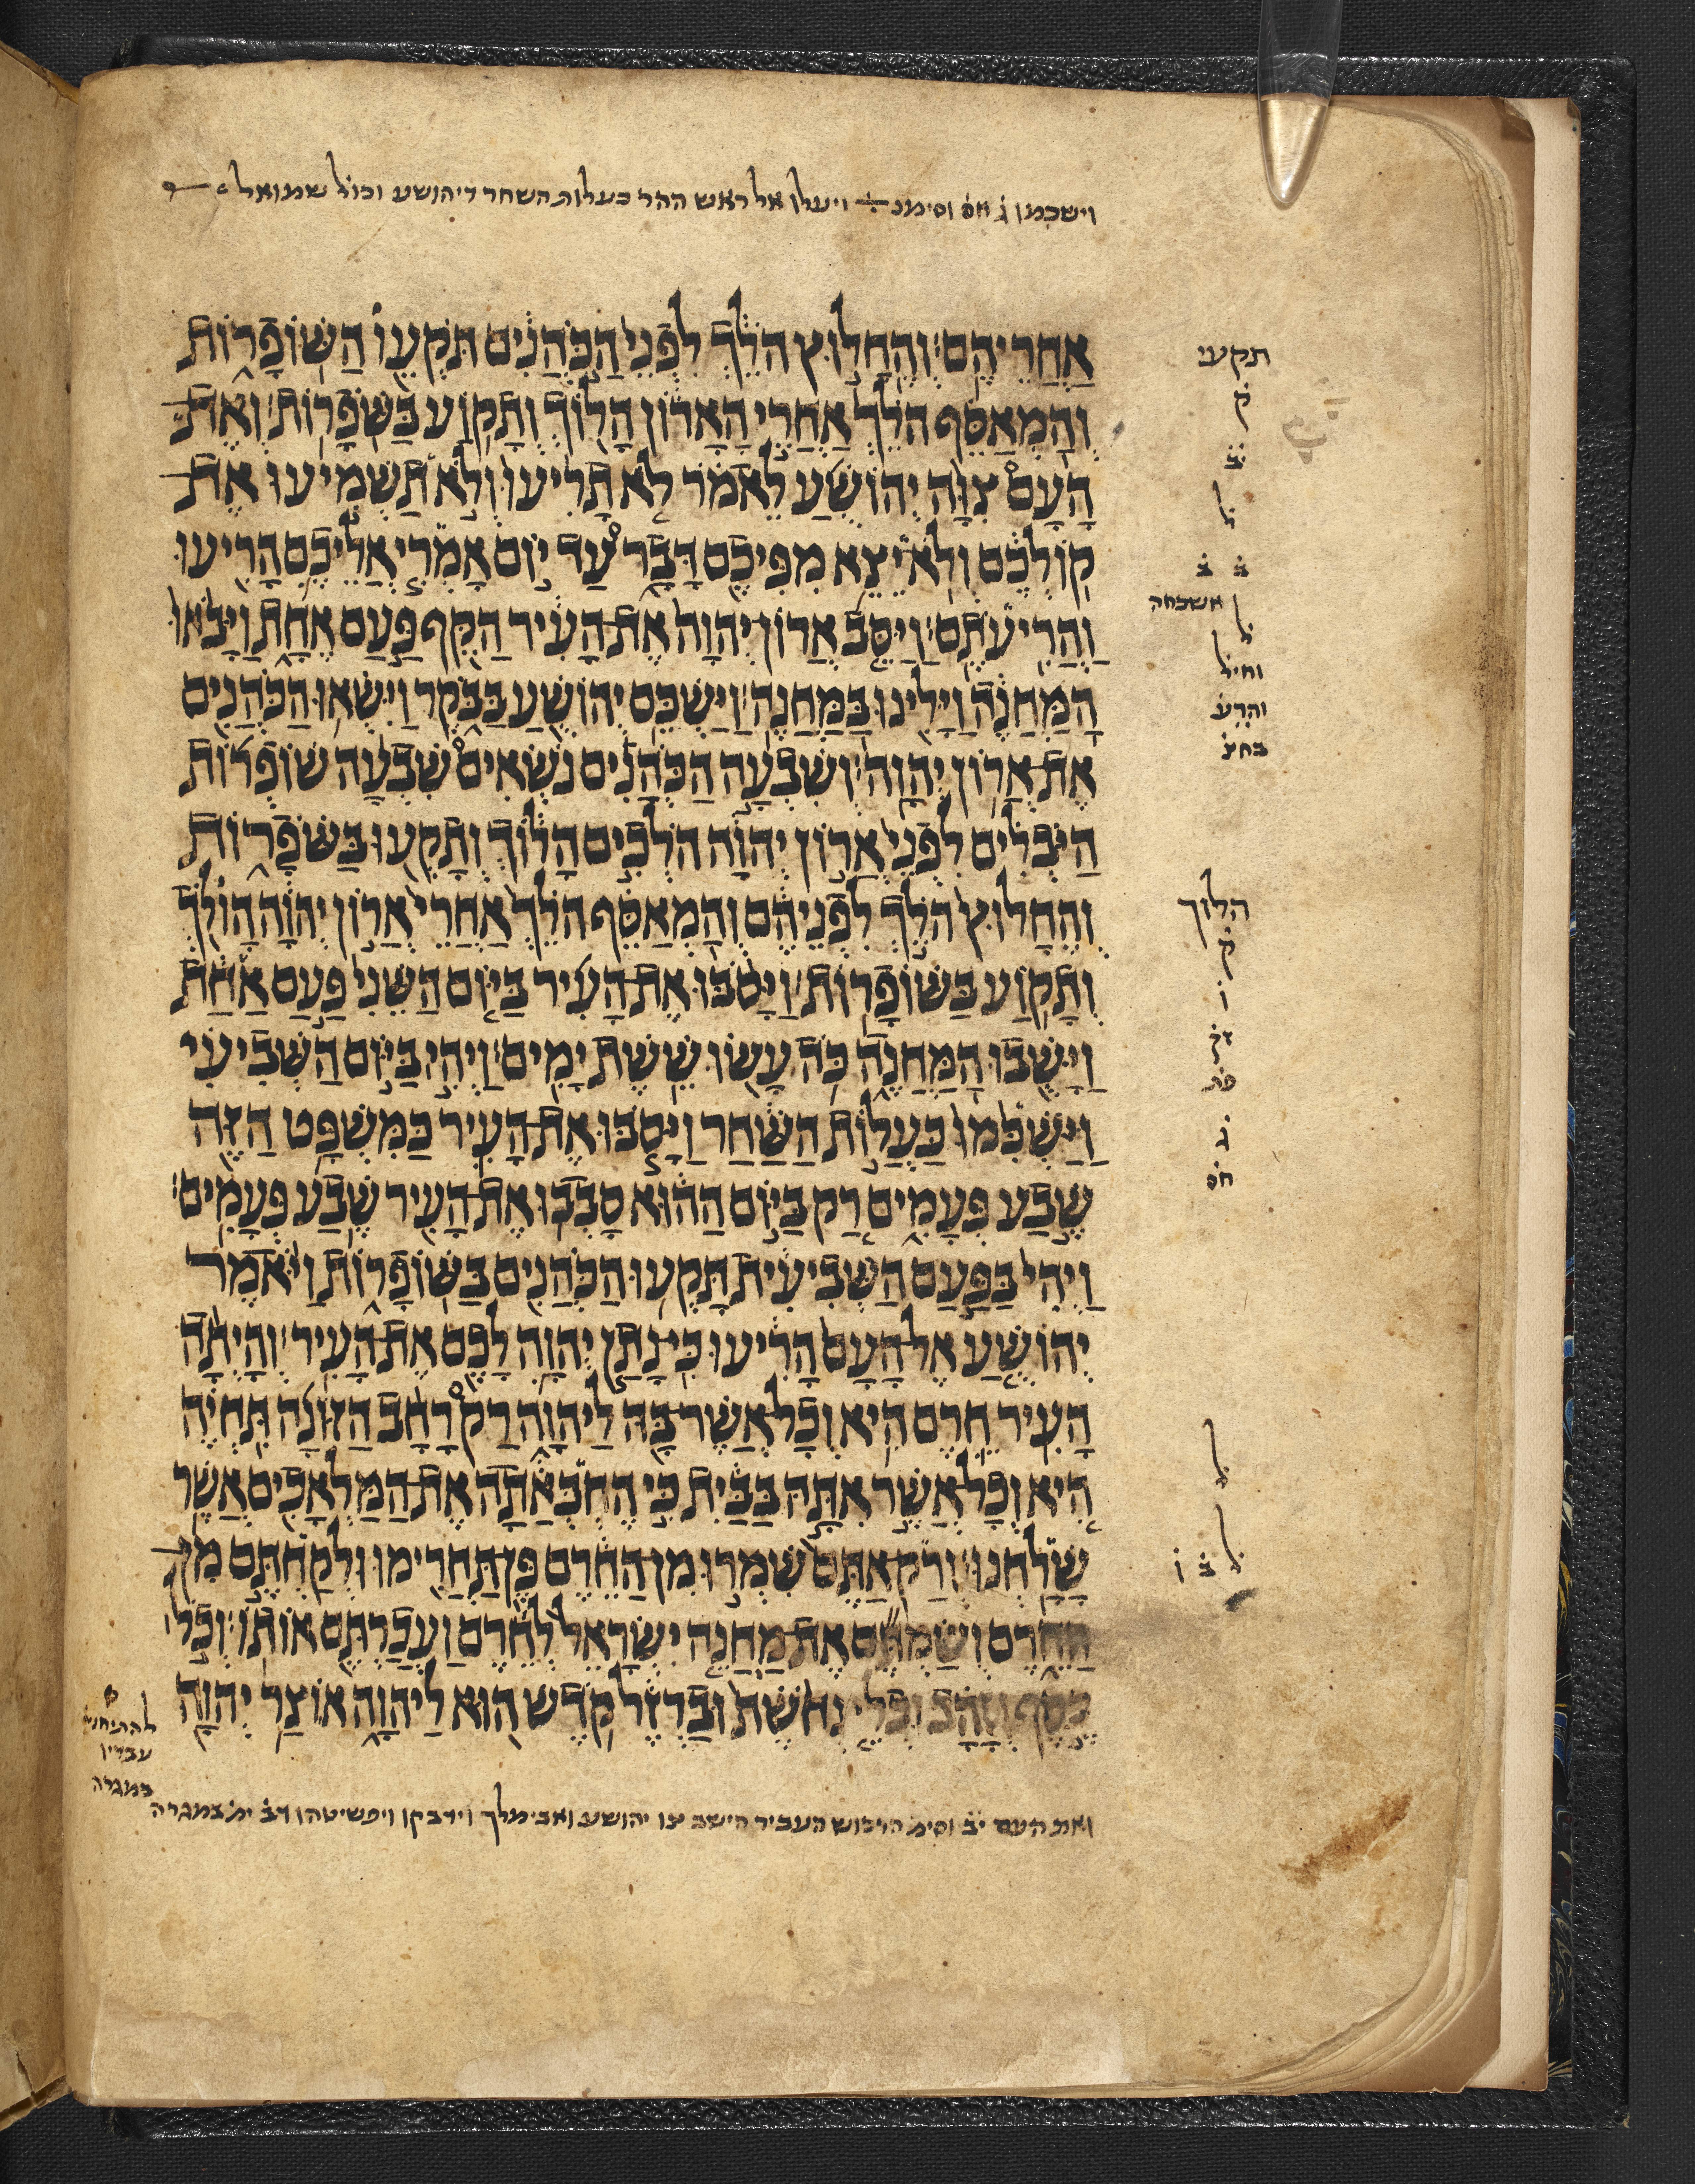 וישכמו ג̇ חס̇ וסימנ ויעלו אל ראש ההר כעלות השחר דיהושע וכול שמואל
אחריהם׃ והחלוץ הלך לפני הכהנים תקעו השופרות
והמאסף הלך אחרי הארון הלוך ותקוע בשפרות׃ ואת
העם צוה יהושע לאמר לא תריעו ולא תשמיעו את
קולכם ולא יצא מפיכם דבר עד יום אמרי אליכם הריעו
והריעתם׃ ויסב ארון יהוה את העיר הקף פעם אחת ויבאו
המחנה וילינו במחנה׃ וישכם יהושע בבקר וישאו הכהנים
את ארון יהוה׃ ושבעה הכהנים נשאים שבעה שופרות
היבלים לפני ארון יהוה הלכים הלוך ותקעו בשפרות
והחלוץ הלך לפניהם והמאסף הלך אחרי ארון יהוה הולך
ותקוע בשופרות׃ ויסבו את העיר ביום השני פעם אחת
וישבו המחנה כה עשו ששת ימים׃ ויהי ביום השביעי
וישכמו כעלות השחר ויסבו את העיר כמשפט הזה
שבע פעמים רק ביום ההוא סבבו את העיר שבע פעמים׃
ויהי בפעם השביעית תקעו הכהנים בשופרות ויאמר
יהושע אל העם הריעו כי נתן יהוה לכם את העיר׃ והיתה
העיר חרם היא וכל אשר בה ליהוה רק רחב הזונה תחיה
היא וכל אשר אתה בבית כי החבאתה את המלאכים אשר
שלחנו׃ ורק אתם שמרו מן החרם פן תחרימו ולקחתם מן
החרם ושמתם את מחנה ישראל לחרם ועכרתם אותו׃ וכל
כסף וזהב וכלי נחשת וברזל קדש הוא ליהוה אוצר יהוה
ואת העם יב̇ וסימ̇ הרכוש העביר הישב צו יהושע ואבימלך וידבקו ויפשיטהו דב̇ ימ̇ במגרה
תקעו
ק̇
יב̇
ל̇
ב̇ ב̇
ל̇ אשכחה
ל̇
וחיל̇
והרע̇
בחצ̇
הלוך
ק̇
ו̇
זק̇
פת̇
ג̇
חס̇
ל̇
ל̇ ב̇ ו̇
עבדיו
במגרה